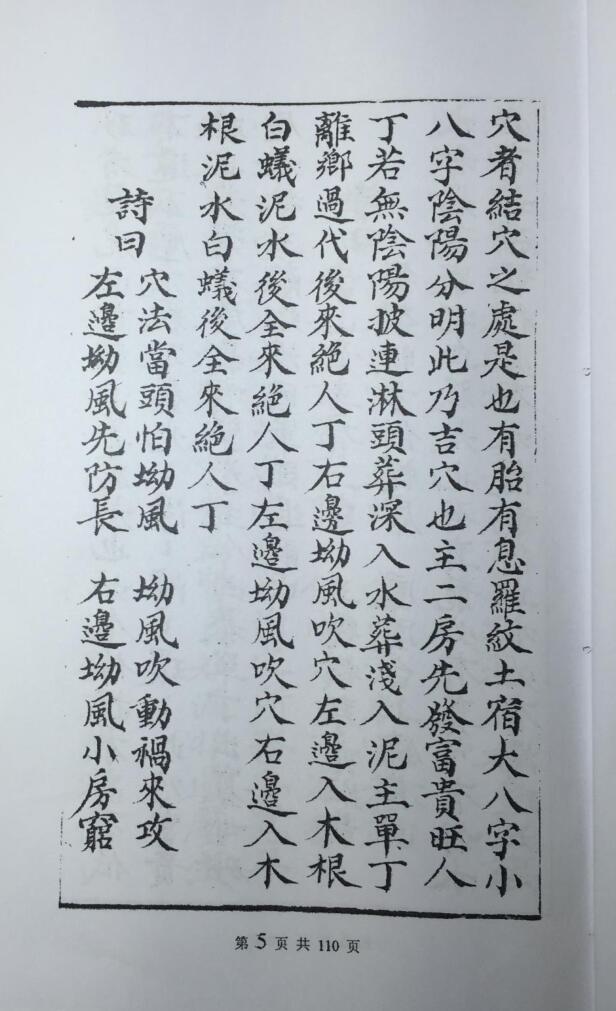 穴者結穴之處是也有胎有息羅紋土宿大八字小
八字陰陽分明此乃吉穴也主二房先發富貴旺人
丁若無陰陽披連淋頭葬深入水葬淺入泥主單丁
離鄉過代後來絕人丁右邊坳風吹穴左邊入木根
白蟻泥水後全來絕人丁左邊坳風吹穴右邊入木
根泥水白蟻後全來絕人丁
詩曰
穴法當頭怕坳風 坳風吹動禍來攻
左邊坳風先防長 右邊坳風小房窮
第5页共110页